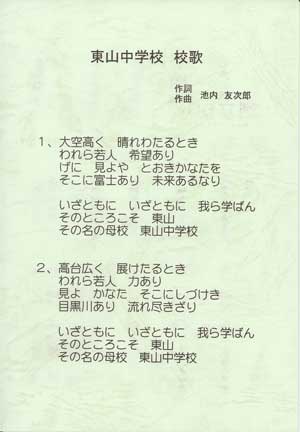 東山中学校 校歌
作詞
作曲 池内 友次郎
1、大空高く 晴れわたるとき
われら若人 希望あり
げに 見よや とおきかなたを
そこに富士あり 未来あるなり
いざともに いざともに 我ら学ばん
そのところこそ 東山
その名の母校 東山中学校
2、高台広く 展けたるとき
われら若人 力あり
見よ かなた そこにしづけき
目黒川あり 流れ尽きざり
いざともに いざともに 我ら学ばん
そのところこそ 東山
その名の母校 東山中学校